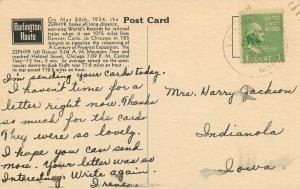 Burlington
Route
On May 26th, 1934, the
ZEPHYR broke all long distance,
non-stop World's Records for railroad
trains when it ran 1015 miles from
Denver, Colo. to Chicago in 785
minutes to signalize the reopening of
A Century of Progress Exposition. The
ZEPHYR left Denver 5:04 A.M. Mountain Time and
reached Halsted Street, Chicago 7:09 P. M. Central
Time.
Post Card
1 CENT
Im sending your cards today.
I haven't time for a
letter right now. Thanks
so much for the cards
They were so lovely.
I hope you can send
more. Your letter was so
Interesting. Write again.
Irene
Mrs. Harry Jackson
Indianola
Iowa